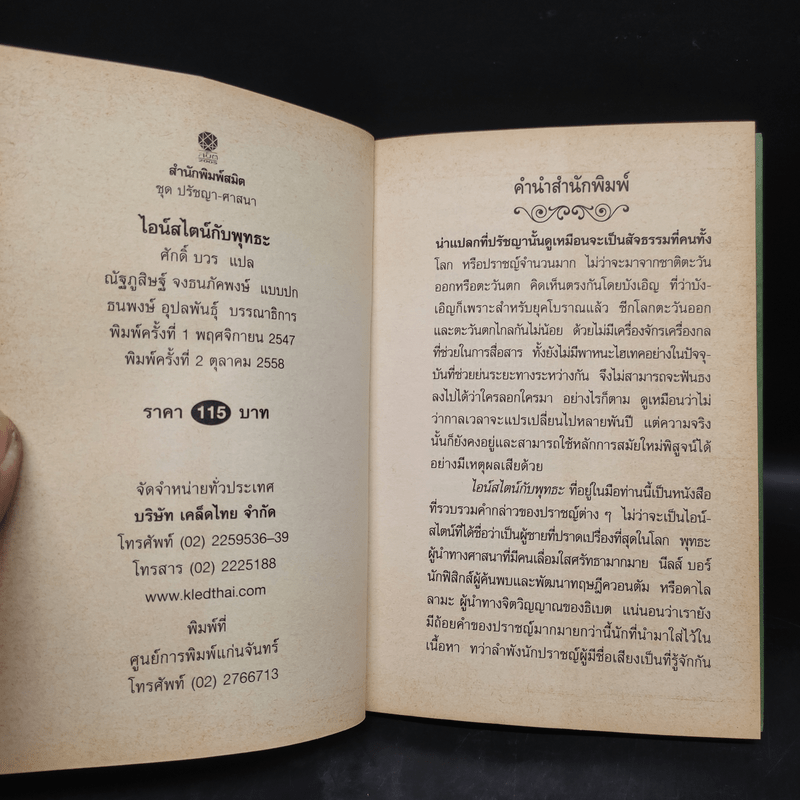 สำนักพิมพ์สมิต
ชุด ปรัชญา-ศาสนา
ไอน์สไตน์กับพุทธะ
ศักดิ์ บวร แปล
ณัฐภูสิษฐ์ จงธนภัคพงษ์ แบบปก
ธนพงษ์ อุปลพันธุ์ บรรณาธิการ
พิมพ์ครั้งที่ 1 พฤศจิกายน 2547
พิมพ์ครั้งที่ 2 ตุลาคม 2558
ราคา 115 บาท
จัดจำหน่ายทั่วประเทศ
บริษัท เคล็ดไทย จำกัด
โทรศัพท์ (02) 2259536-39
โทรสาร (02) 2225188
www.kledthai.com
พิมพ์ที่
ศูนย์การพิมพ์แก่นจันทร์
โทรศัพท์ (02) 2766713
คำนำสำนักพิมพ์
น่าแปลกที่ปรัชญานั้นดูเหมือนจะเป็นสัจธรรมที่คนทั้ง
โลก หรือปราชญ์จำนวนมาก ไม่ว่าจะมาจากซาติตะวัน
ออกหรือตะวันตก คิดเห็นตรงกันโดยบังเอิญ ที่ว่าบัง-
เอิญก็เพราะสำหรับยุคโบราณแล้ว ซีกโลกตะวันออก
และตะวันตกไกลกันไม่น้อย ด้วยไม่มีเครื่องจักรเครื่องกล
ที่ช่วยในการสื่อสาร ทั้งยังไม่มีพาหนะไฮเทคอย่างในปัจจุ-
บันที่ช่วยย่นระยะทางระหว่างกัน จึงไม่สามารถจะฟันธง
ลงไปได้ว่าใครลอกใครมา อย่างไรก็ตาม ดูเหมือนว่าไม่
ว่ากาลเวลาจะแปรเปลี่ยนไปหลายพันปี แต่ความจริง
นั้นก็ยังคงอยู่และสามารถใช้หลักการสมัยใหม่พิสูจน์ได้
อย่างมีเหตุผลเสียด้วย
ไอน์สไตน์กับพุทธะ ที่อยู่ในมือท่านนี้เป็นหนังสือ
ที่รวบรวมคำกล่าวของปราชญ์ต่าง ๆ ไม่ว่าจะเป็นไอน์-
สไตน์ที่ได้ชื่อว่าเป็นผู้ชายที่ปราดเปรื่องที่สุดในโลก พุทธะ
ผู้นำทางศาสนาที่มีคนเลื่อมใสศรัทธามากมาย นีลส์ บอร์
นักฟิสิกส์ผู้ค้นพบและพัฒนาทฤษฎีควอนตัม หรือดาไล
ลามะ ผู้นำทางจิตวิญญาณของธิเบต แน่นอนว่าเรายัง
มีถ้อยคำของปราชญ์มากมายกว่านี้นักที่นำมาใส่ไว้ใน
เนื้อหา ทว่าลำพังนักปราชญ์ผู้มีชื่อเสียงเป็นที่รู้จักกัน